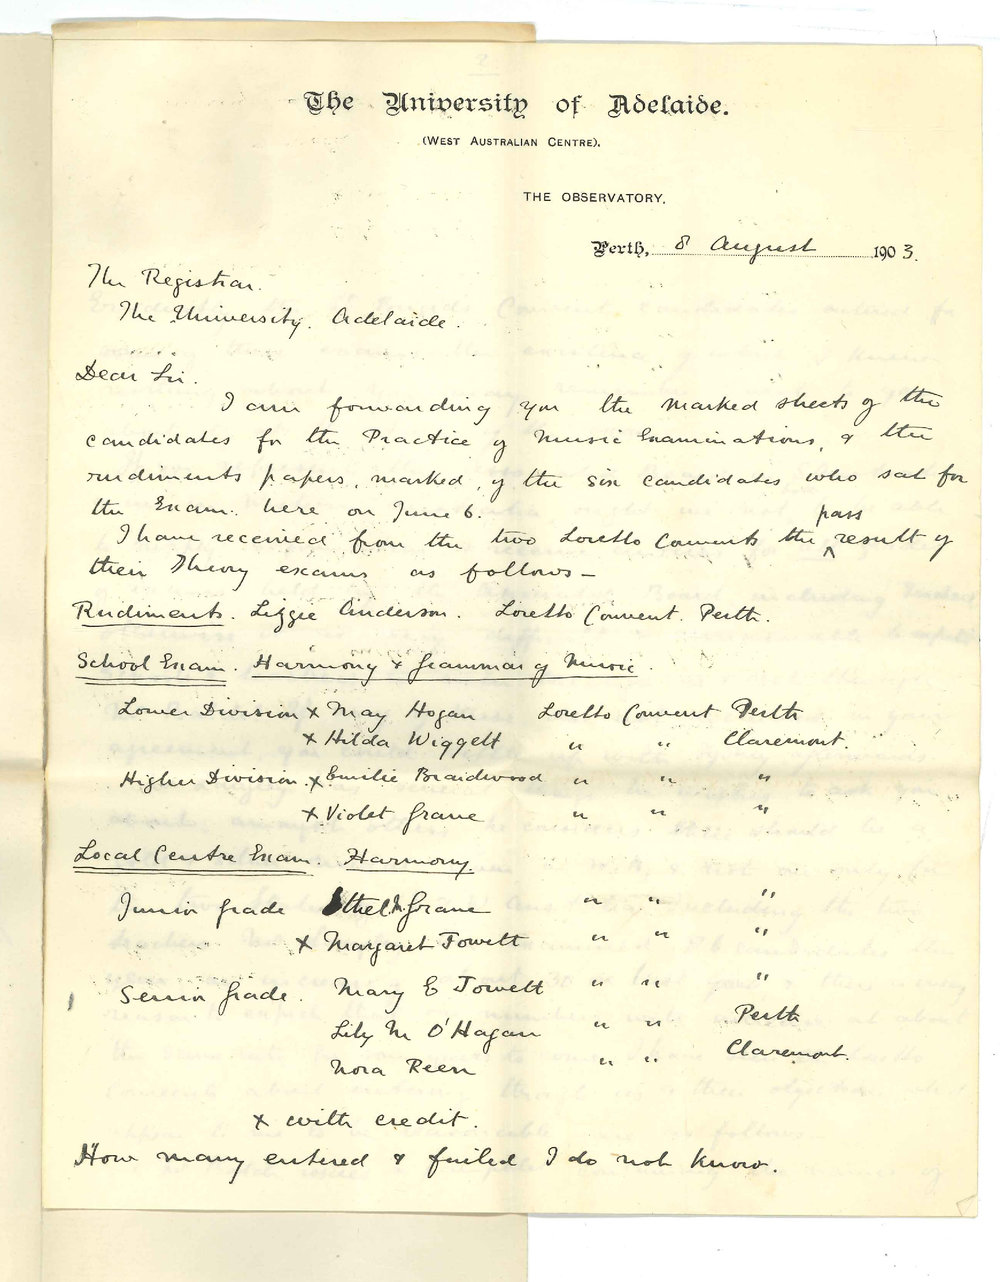 The University of Adelaide.
(WEST AUSTRALIAN CENTRE).
THE OBSERVATORY.
Perth, 8 August 1903.
The Registrar.
The University. Adelaide.
Dear Sir.
I am forwarding you the marked sheets of the
candidates for the Practice of Music Examinations, & the
rudiments papers, marked, of the six candidates who sat for
the Exam. here on June 6.
I have received from the two Loretto Convents the pass result of
their Theory exams as follows —
Rudiments. Lizzie Anderson. Loretto Convent. Perth.
School Exam. Harmony & Grammar of Music.
Lower Division x May Hogan Loretto Convent Perth
x Hilda Wiggett " " Claremont.
Higher Division. x Emilie Braidwood " " "
x Violet Grave " " "
Local Centre Exam. Harmony.
Junior Grade Ethel Grave " " "
x Margaret Jowett " " "
Senior Grade. Mary E Jowett " " "
Lily M O'Hagan " " Perth
Nora Reen " " Claremont.
x with credit.
How many entered & failed I do not know.